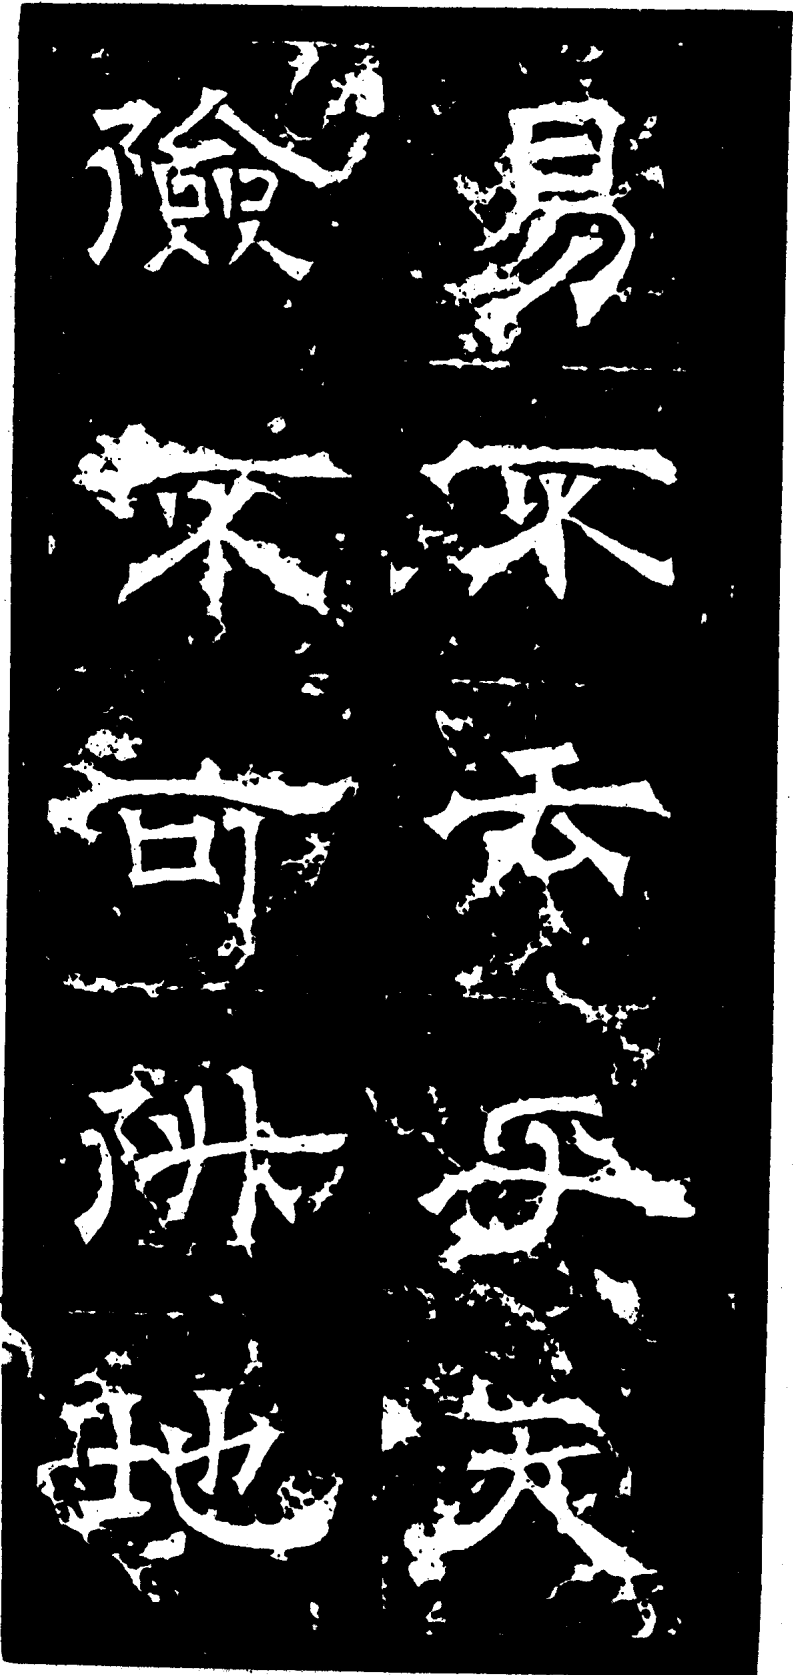 易不云乎天
險不可阩地